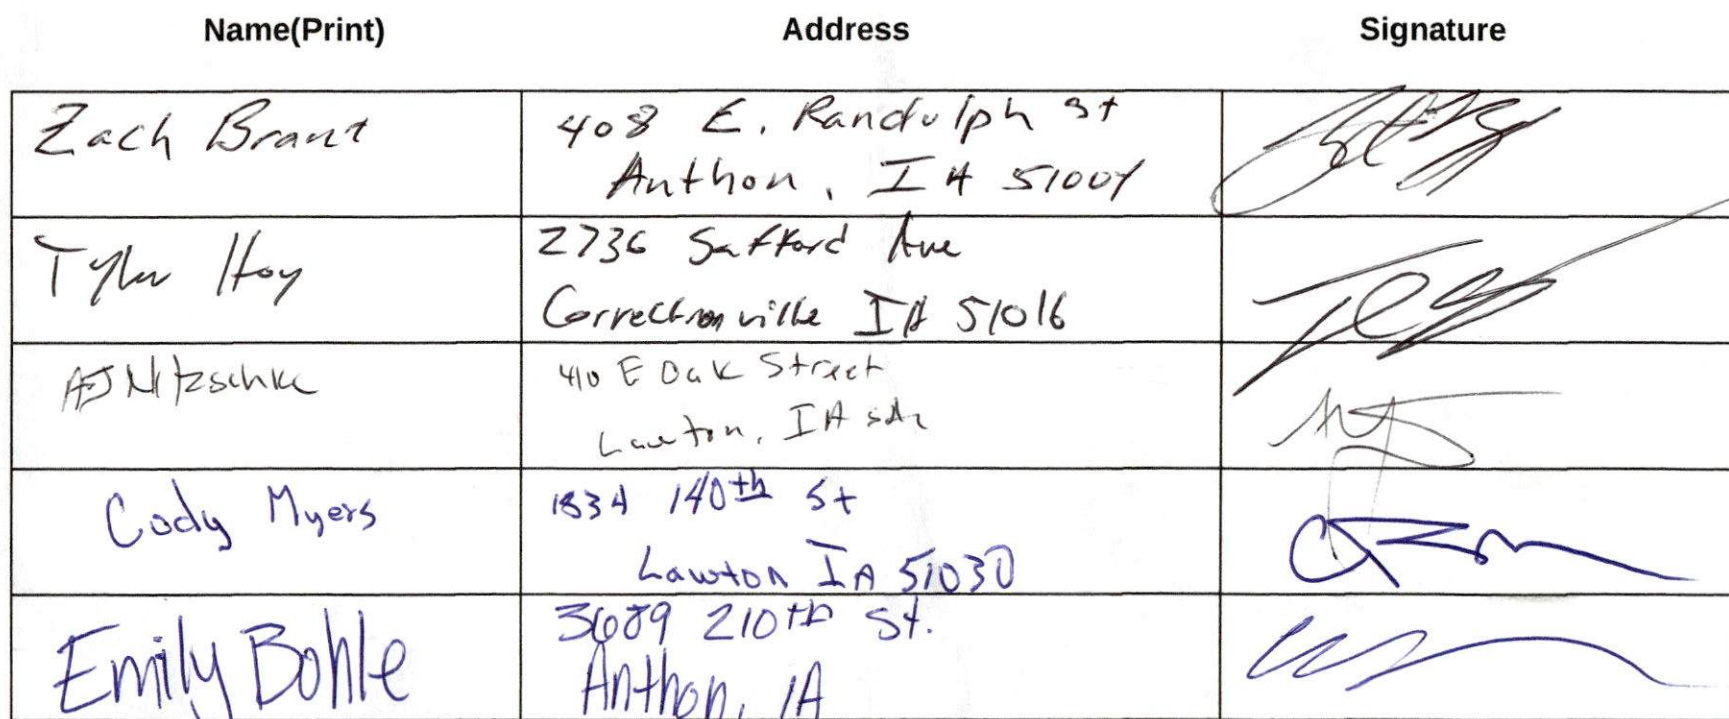 Name(Print) Address Signature
Zach Brant 408 E. Randolph St
Anthon, IA 51004
Tyler Hoy 2736 Safford Ave
Correctionville IA 51016
AJ Nitzschke 410 E Oak Street
Lawton, IA
Cody Myers 1834 140th St
Lawton IA 51030
Emily Bohle 3689 210th St.
Anthon, IA